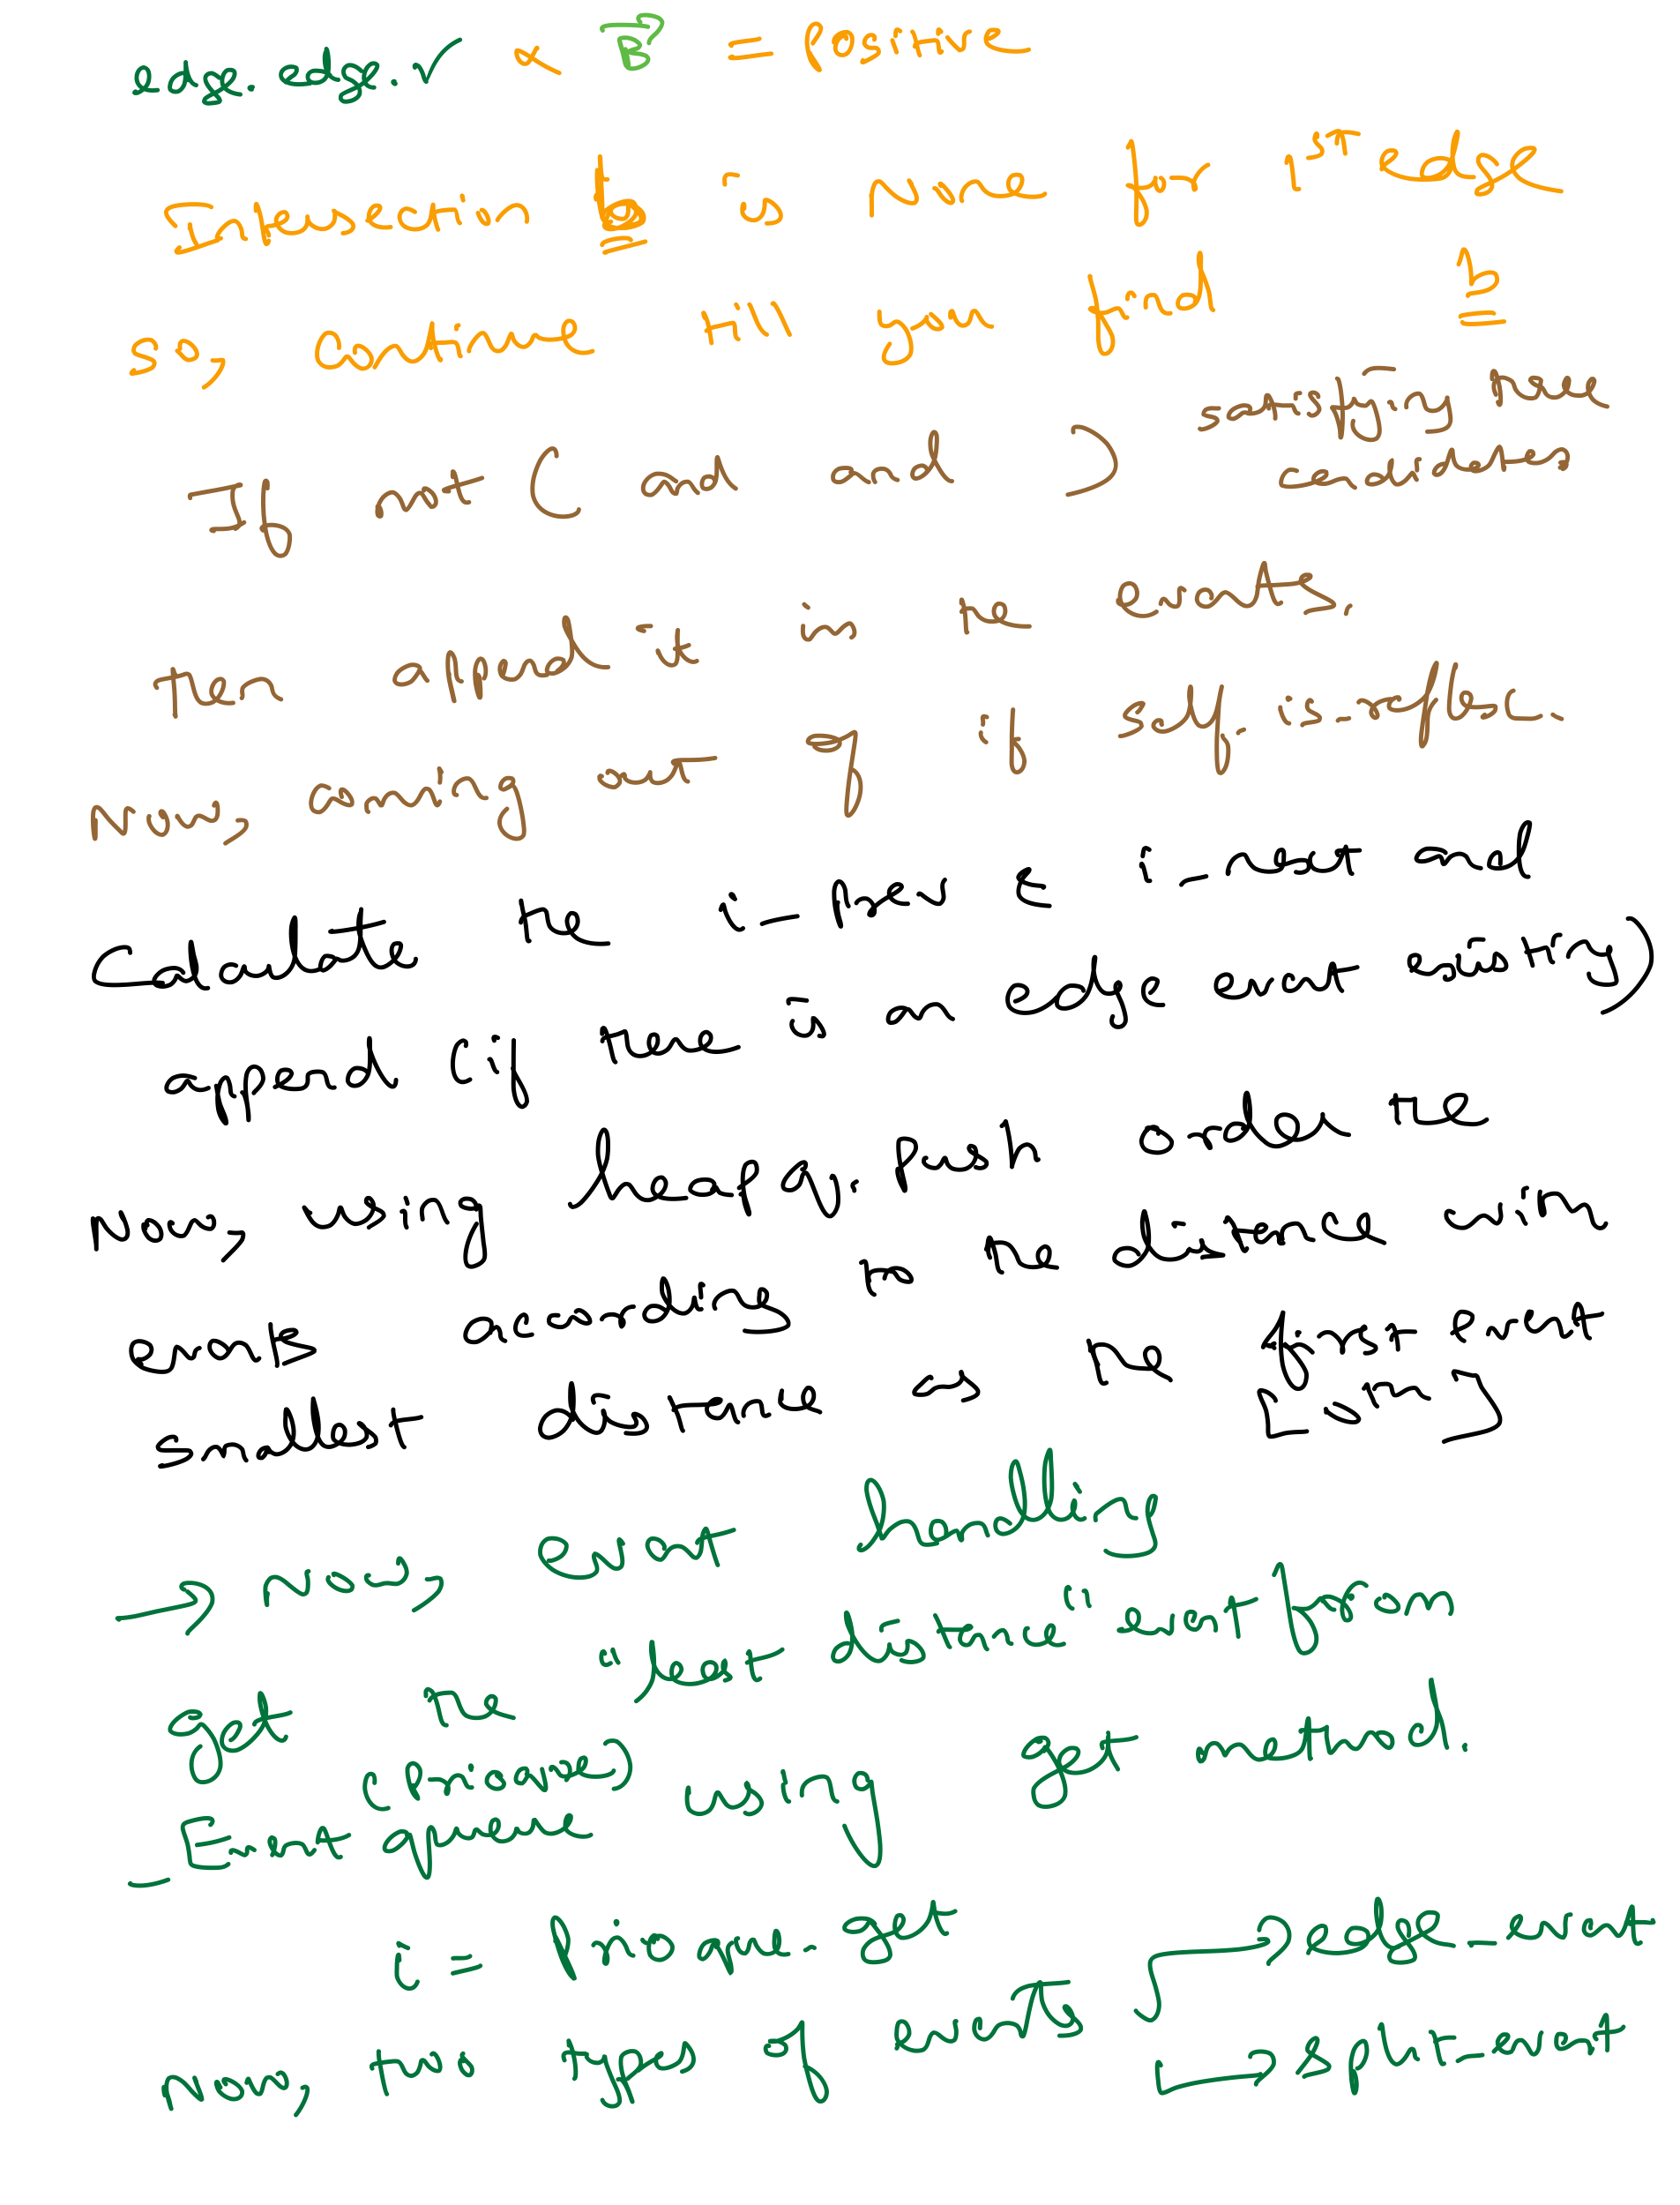 edge.edge.v ∝ B = Positive
Intersection b is none for 1ST edge
so, continue till you find b
If not ( and and ) satisfying these
candidates
then append it in the events.
Now, coming out of if self.is-reflec.
Calculate the i-prev & i-next and
append (if there is an edge event existing)
Now, using heapq.push order the
events according to the distance with
smallest distance as the first event
[>]
→ Now, event handling
get the "least distance" event from
(Prioque)
_Event queue using get method.
i = Prioque.get
Now, two types of events → edge-event
→ split-event